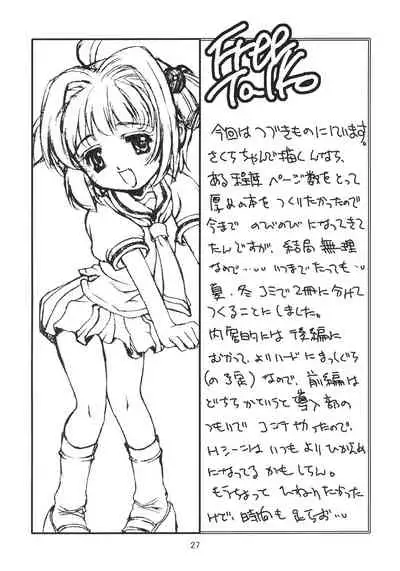 Free Talk
今回はつづきものにしています。
さくらちゃんで描くんなら、
ある程度ページ数をとって
厚めの本をつくりたかったので
今まで のびのびになってきて
たんですが、結局 無理
なので…‥ いつまでたっても‥
夏、冬 コミで2冊に分けて
つくることにしました。
内容的には 後編に
むかって、よりハードにまっしぐら
なので、前編は
どちらかていうと導入部の
つもりで
Hシーンは いつも より ひかえめ
になってる かもしれん。
もうちょっと ひねりたかった
けど、時間も
27